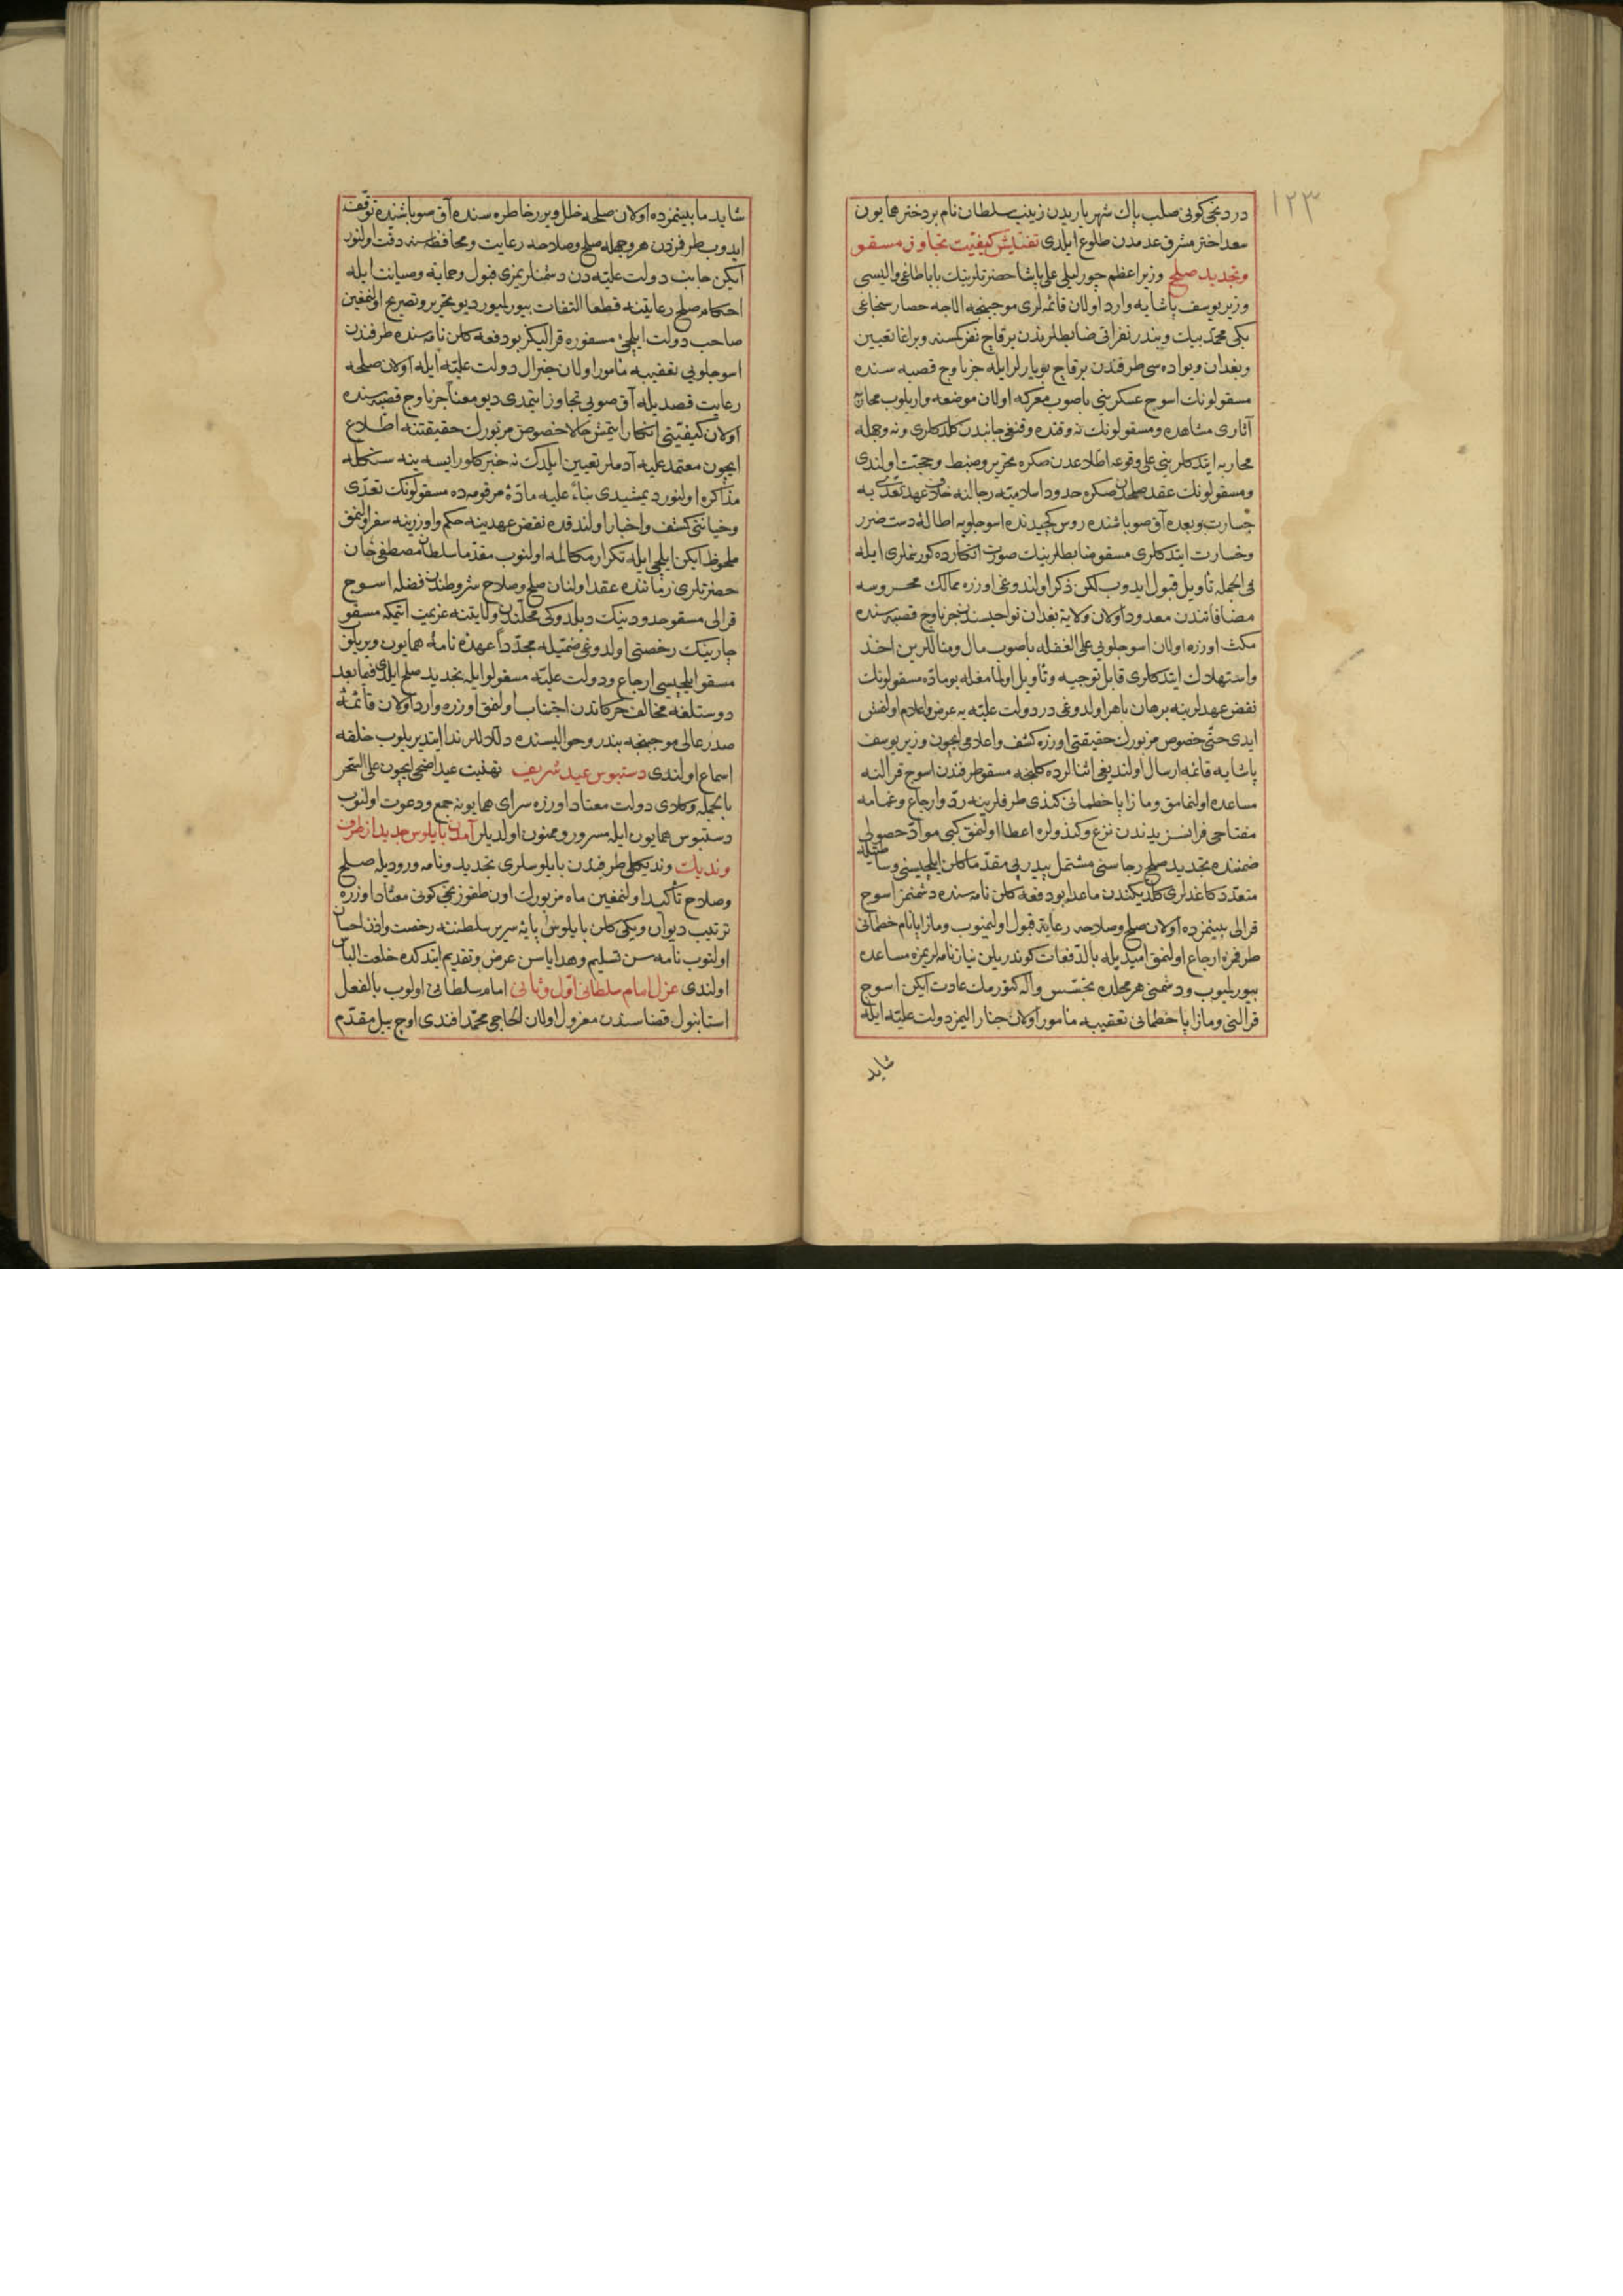 ١٢٣
دردنجی کونی صلب پاك شهریاریدن زینب سلطان نام بر دختر همایون
سعد اختر مشرق عدمدن طلوع ایلدی تفتیش کیفیت تجاوز مسقو
وتجدید صلح وزیر اعظم چورلیلی علی پاشا حضرتلرینك باباطاغی والیسی
وزیر یوسف پاشایه وارد اولان قائمه لری موجبنجه الاجه حصار سنجاغی
بکی محمد بیك وبندر نفراتی ضابطلرندن برقاچ نفر کسنه وبر اغا تعیین
وبغدان ویواده سی طرفندن برقاچ بویارلر ایله جرناوج قصبه سنده
مسقولونك اسوج عسکرینی باصوب معرکه اولان موضعه واریلوب محاربه
آثاری مشاهده ومسقولونك نه وقتده وقنغی جانبدن کلدکلری ونه وجهله
محاربه ایتدکلرینی علی وقوعه اطلاعدن صکره تحریر وضبط وحجت اولندی
ومسقولونك عقد صلحدن صکره حدود اسلامیه رجالنه خلاف عهد تعدی یه
جسارت وبعده آق صو باشنده روس کچیدنده اسوجلویه اطالهٔ دست ضرر
وخسارت ایتدکلری مسقو ضابطلرینك صورت انکارده کورنملری ایله
فی الجمله تأویل قبول ایدوب لکن ذکر اولندوغی اوزره ممالك محروسه
مضافاتندن معدود اولان ولایة بغدان نواحیسندن جرناوج قصبه سنده
مکث اوزره اولان اسوجلویی علی الغفله باصوب مال ومناللرین اخذ
واستهلاك ایتدکلری قابل توجیه وتأویل اولمامغله بو ماده مسقولونك
نقض عهدلرینه برهان باهر اولدوغی در دولت علیه یه عرض واعلام اولنمش
ایدی حتی خصوص مزبورك حقیقتی اوزره کشف واعلامی ایچون وزیر یوسف
پاشایه قائمه ارسال اولندیغی اثنالرده کلنجه مسقو طرفندن اسوج قرالنه
مساعده اولنمامق ومازاپا خطمانی کندی طرفلرینه رد وارجاع وتمامه
مفتاحی فرانسز یدندن نزع وکندولره اعطا اولنمق کبی مواد حصولی
ضمننده تجدید صلح رجاسنی مشتمل پیدرپی مقدما کلن ایلچیسی وساطتیله
متعدد کاغدلری کلدیکندن ماعدا بو دفعه کلن نامه سنده دشمنمز اسوج
قرالی بینمزده اولان صلح وصلاحه رعایة قبول اولنمیوب ومازاپا نام خطمانی
طرفمزه ارجاع اولنمق امیدیله بالدفعات کوندریلن نیازنامه لریمزه مساعده
بیورلمیوب ودشمنی هر محلده تجسس واله کتورمك عادت ایکن اسوج
قرالنی ومازاپا خطمانی تعقیبه مأمور اولان جنارالیمز دولت علیه ایله
شاید
شاید مابینمزده اولان صلحه خلل ویرر خاطره سنده آق صو باشنده توقف
ایدوب طرفمزدن هر وجهله صلح وصلاحه رعایت ومحافظه سنه دقت اولنور
ایکن جانب دولت علیه دن دشمنلریمزی قبول وحمایه وصیانت ایله
احکام صلح رعایتنه قطعا التفات بیورلمیور دیو تحریر وتصریح اولنمغین
صاحب دولت ایلچیٔ مسفوره قرالیکز بو دفعه کلن نامه سنده طرفندن
اسوجلویی تعقیبه مأمور اولان جنرال دولت علیه ایله اولان صلحه
رعایت قصدیله آق صویی تجاوز ایتمدی دیو معنا جرناوج قصبه سنده
اولان کیفیتی انکار ایتمش حالا خصوص مزبورك حقیقتنه اطلاع
ایچون معتمد علیه آدملر تعیین ایلدك نه خبر کلور ایسه ینه سنکله
مذاکره اولنور دیمشیدی بناءً علیه مادهٔ مرقومه ده مسقولونك تعدی
وخیانتی کشف واخبار اولندقده نقض عهدینه حکم واوزرینه سفر اولنمق
ملحوظ ایکن ایلچی ایله تکرار مکالمه اولنوب مقدما سلطان مصطفی خان
حضرتلری زماننده عقد اولنان صلح وصلاح شروطندن فضله اسوج
قرالی مسقو حدودینك دیلدوکی محلندن ولایتنه عزیمت ایتمکه مسقو
چارینك رخصتی اولدوغی ضمیله مجدداً عهدنامهٔ همایون ویریلوب
مسقو ایلچیسی ارجاع ودولت علیه مسقولو ایله تجدید صلح ایلدی فیمابعد
دوستلغه مخالف حرکاتدن اجتناب اولنمق اوزره وارد اولان قائمهٔ
صدر عالی موجبنجه بندر وحوالیسنده دلاللر ندا ایتدیریلوب خلقه
اسماع اولندی دستبوس عید شریف تهنیت عید اضحی ایچون علی السحر
بالجمله وکلای دولت معتاد اوزره سرای همایونه جمع ودعوت اولنوب
دستبوس همایون ایله مسرور وممنون اولدیلر آمدن بایلوس جدید از طرف
وندیك وندیکلی طرفندن بایلوسلری تجدید ونامه ورودیله صلح
وصلاح تأکید اولنمغین ماه مزبورك اون طقوزنجی کونی معتاد اوزره
ترتیب دیوان ویکی کلن بایلوس پایهٔ سریر سلطنته رخصت واذن احسان
اولنوب نامه سن تسلیم وهدایاسن عرض وتقدیم ایتدکده خلعت الباس
اولندی عزل امام سلطانی اول وثانی امام سلطانی اولوب بالفعل
استانبول قضاسندن معزول اولان الحاجی محمد افندی اوج ییل مقدم